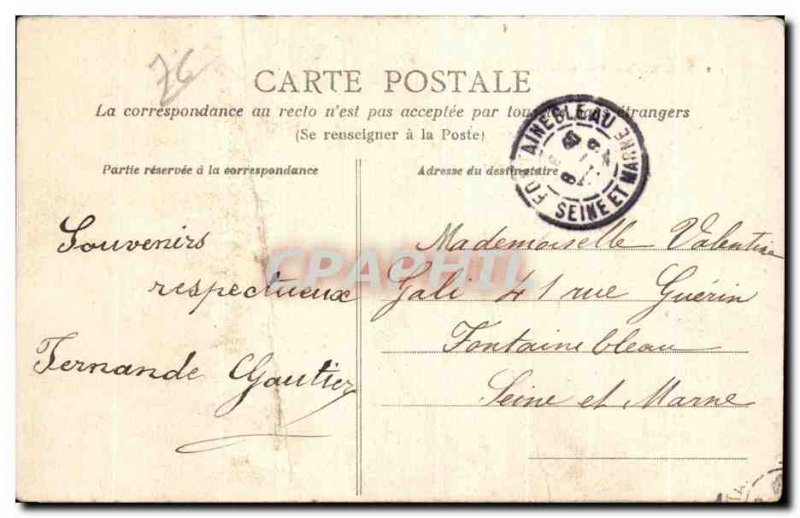 76
CARTE POSTALE
La correspondance au recto n'est pas acceptée par tous étrangers
(Se renseigner à la Poste)
FONTAINEBLEAU
SEINE ET MARNE
Partie réservée à la correspondance
Adresse du destinataire
Souvenirs
respectueux
Fernande Gautier
Mademoiselle Valentine
Gali 41 rue Guérin
Fontainebleau
Seine et Marne
CPAPHIL